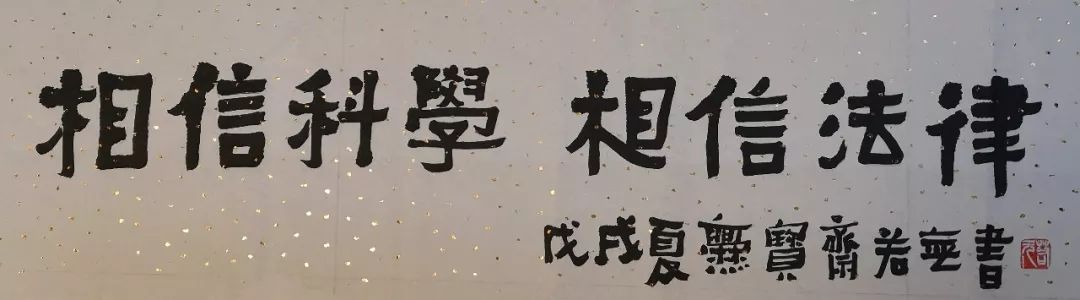 相信科學 相信法律
戊戌夏無寶齋若無書